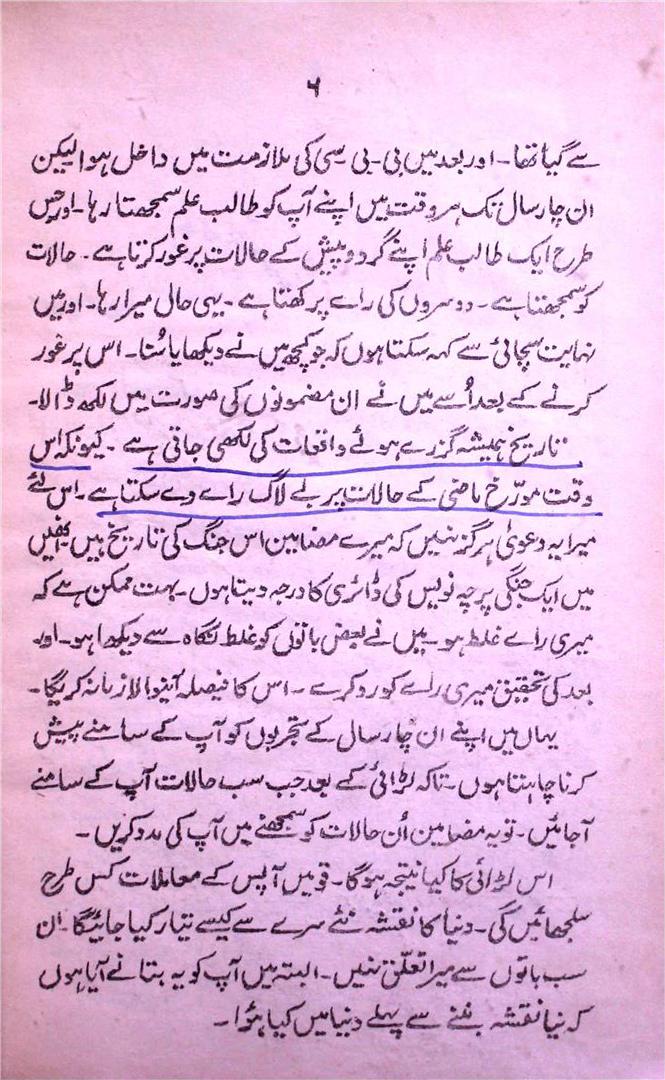 ۶
سے گیا تھا۔ اور بعد میں بی۔بی۔سی کی ملازمت میں داخل ہوا لیکن
ان چار سال تک ہر وقت میں اپنے آپ کو طالب علم سمجھتا رہا۔ اور جس
طرح ایک طالب علم اپنے گرد و پیش کے حالات پر غور کرتا ہے۔ حالات
کو سمجھتا ہے۔ دوسروں کی رائے پرکھتا ہے۔ یہی حال میرا رہا۔ اور میں
نہایت سچائی سے کہہ سکتا ہوں کہ جو کچھ میں نے دیکھا یا سُنا۔ اس پر غور
کرنے کے بعد اُسے میں نے ان مضمونوں کی صورت میں لکھ ڈالا۔
تاریخ ہمیشہ گزرے ہوئے واقعات کی لکھی جاتی ہے۔ کیونکہ اس
وقت مورّخ ماضی کے حالات پر بے لاگ رائے دے سکتا ہے۔ اس لئے
میرا یہ دعویٰ ہرگز نہیں کہ میرے مضامین اس جنگ کی تاریخ ہیں۔ انھیں
میں ایک جنگی پرچہ نویس کی ڈائری کا درجہ دیتا ہوں۔ بہت ممکن ہے کہ
میری رائے غلط ہو۔ میں نے بعض باتوں کو غلط نگاہ سے دیکھا ہو۔ اور
بعد کی تحقیق میری رائے کو رد کرے۔ اس کا فیصلہ آنیوالا زمانہ کریگا۔
یہاں میں اپنے ان چار سال کے تجربوں کو آپ کے سامنے پیش
کرنا چاہتا ہوں۔ تاکہ لڑائی کے بعد جب سب حالات آپ کے سامنے
آ جائیں۔ تو یہ مضامین اُن حالات کو سمجھنے میں آپ کی مدد کریں۔
اس لڑائی کا کیا نتیجہ ہوگا۔ قومیں آپس کے معاملات کس طرح
سلجھائیں گی۔ دنیا کا نقشہ نئے سرے سے کیسے تیار کیا جائیگا۔ ان
سب باتوں سے میرا تعلّق نہیں۔ البتہ میں آپ کو یہ بتانے آیا ہوں
کہ نیا نقشہ بننے سے پہلے دنیا میں کیا ہوُا۔